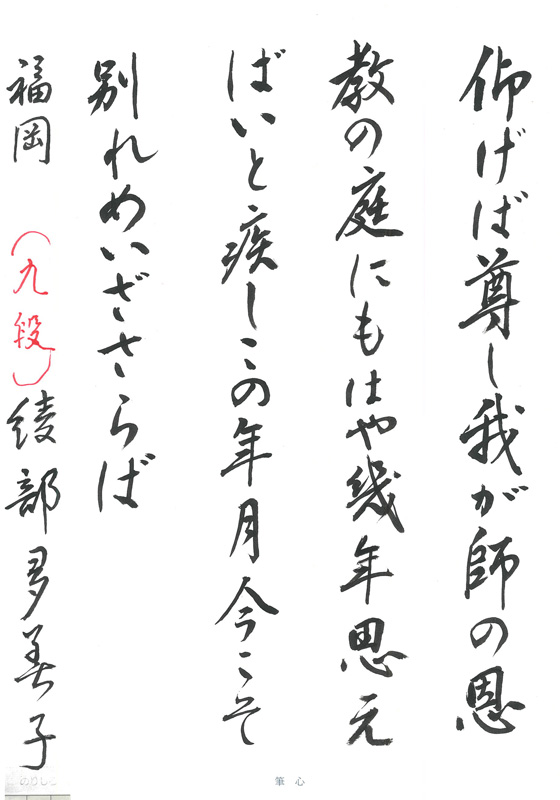 仰げば尊し我が師の恩
教の庭にもはや幾年思え
ばいと疾しこの年月今こそ
別れめいざさらば
福岡 (九段) 綾部多美子
のりしろ
筆心